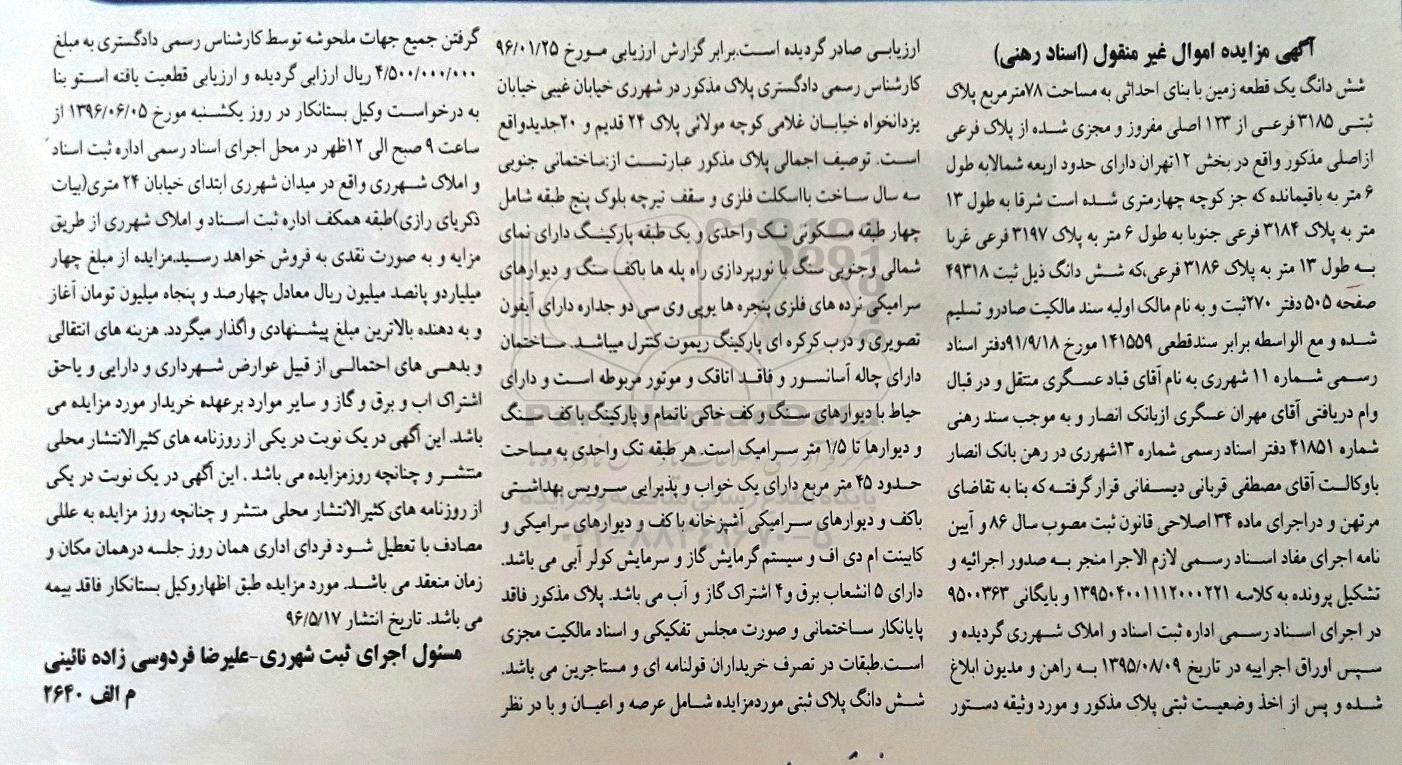 آگهی مزایده اموال غیر منقول (اسناد رهنی)
شش دانگ یک قطعه زمین با بنای احداثی به مساحت ۷۸مترمربع پلاک
ثبتی ۳۱۸۵ فرعی از ۱۲۳ اصلی مفروز و مجزی شده از پلاک فرعی
ازاصلی مذکور واقع در بخش ۱۲تهران دارای حدود اربعه شمالابه طول
۶ متر به باقیمانده که جز کوچه چهارمتری شده است شرقا به طول ۱۳
متر به پلاک ۳۱۸۴ فرعی جنوبا به طول ۶ متر به پلاک ۳۱۹۷ فرعی غربا
به طول ۱۳ متر به پلاک ۳۱۸۶ فرعی،که شش دانگ ذیل ثبت ۴۹۳۱۸
صفحه ۵۰۵ دفتر ۲۷۰ثبت و به نام مالک اولیه سند مالکیت صادرو تسلیم
شده و مع الواسطه برابر سندقطعی ۱۴۱۵۵۹ مورخ ۹۱/۹/۱۸دفتر اسناد
رسمی شماره ۱۱ شهرری به نام آقای قباد عسگری منتقل و در قبال
وام دریافتی آقای مهران عسگری ازبانک انصار و به موجب سند رهنی
شماره ۴۱۸۵۱ دفتر اسناد رسمی شماره ۱۳شهرری در رهن بانک انصار
باوکالت آقای مصطفی قربانی دیسفانی قرار گرفته که بنا به تقاضای
مرتهن و دراجرای ماده ۳۴ اصلاحی قانون ثبت مصوب سال ۸۶ و آیین
نامه اجرای مفاد اسناد رسمی لازم الاجرا منجر به صدور اجرائیه و
تشکیل پرونده به کلاسه ۱۳۹۵۰۴۰۰۱۱۱۲۰۰۰۲۲۱ و بایگانی ۹۵۰۰۳۶۳
در اجرای اسناد رسمی اداره ثبت اسناد و املاک شهرری گردیده و
سپس اوراق اجراییه در تاریخ ۱۳۹۵/۰۸/۰۹ به راهن و مدیون ابلاغ
شده و پس از اخذ وضعیت ثبتی پلاک مذکور و مورد وثیقه دستور
ارزیابی صادر گردیده است.برابر گزارش ارزیابی مورخ ۹۶/۰۱/۲۵
کارشناس رسمی دادگستری پلاک مذکور در شهرری خیابان غیبی خیابان
یزدانخواه خیابان غلامی کوچه مولائی پلاک ۲۴ قدیم و ۲۰جدیدواقع
است. توصیف اجمالی پلاک مذکور عبارتست از:ساختمانی جنوبی
سه سال ساخت بااسکلت فلزی و سقف تیرچه بلوک پنج طبقه شامل
چهار طبقه مسکونی تک واحدی و یک طبقه پارکینگ دارای نمای
شمالی وجنوبی سنگ با نورپردازی راه پله ها باکف سنگ و دیوارهای
سرامیکی نرده های فلزی پنجره ها یوپی وی سی دو جداره دارای آیفون
تصویری و درب کرکره ای پارکینگ ریموت کنترل میباشد. ساختمان
دارای چاله آسانسور و فاقد اتاقک و موتور مربوطه است و دارای
حیاط با دیوارهای سنگ و کف خاکی ناتمام و پارکینگ با کف سنگ
و دیوارها تا ۱/۵ متر سرامیک است. هر طبقه تک واحدی به مساحت
حدود ۴۵ متر مربع دارای یک خواب و پذیرایی سرویس بهداشتی
باکف و دیوارهای سرامیکی آشپزخانه با کف و دیوارهای سرامیکی و
کابینت ام دی اف و سیستم گرمایش گاز و سرمایش کولر آبی می باشد.
دارای ۵ انشعاب برق و۴ اشتراک گاز و آب می باشد. پلاک مذکور فاقد
پایانکار ساختمانی و صورت مجلس تفکیکی و اسناد مالکیت مجزی
است.طبقات در تصرف خریداران قولنامه ای و مستاجرین می باشد.
شش دانگ پلاک ثبتی موردمزایده شامل عرصه و اعیان و با در نظر
گرفتن جمیع جهات ملحوشه توسط کارشناس رسمی دادگستری به مبلغ
۴/۵۰۰/۰۰۰/۰۰۰ ریال ارزابی گردیده و ارزیابی قطعیت یافته استو بنا
به درخواست وکیل بستانکار در روز یکشنبه مورخ ۱۳۹۶/۰۶/۰۵ از
ساعت ۹ صبح الی ۱۲ظهر در محل اجرای اسناد رسمی اداره ثبت اسناد
و املاک شهرری واقع در میدان شهرری ابتدای خیابان ۲۴ متری(بیات
ذکریای رازی)طبقه همکف اداره ثبت اسناد و املاک شهرری از طریق
مزایه و به صورت نقدی به فروش خواهد رسید.مزایده از مبلغ چهار
میلیاردو پانصد میلیون ریال معادل چهارصد و پنجاه میلیون تومان آغاز
و به دهنده بالاترین مبلغ پیشنهادی واگذار میگردد. هزینه های انتقالی
و بدهی های احتمالی از قبیل عوارض شهرداری و دارایی و یاحق
اشتراک اب و برق و گاز و سایر موارد برعهده خریدار مورد مزایده می
باشد. این آگهی در یک نوبت در یکی از روزنامه های کثیرالانتشار محلی
منتشر و چنانچه روزمزایده می باشد . این آگهی در یک نوبت در یکی
از روزنامه های کثیرالانتشار محلی منتشر و چنانچه روز مزایده به عللی
مصادف با تعطیل شود فردای اداری همان روز جلسه درهمان مکان و
زمان منعقد می باشد. مورد مزایده طبق اظهاروکیل بستانکار فاقد بیمه
می باشد. تاریخ انتشار ۹۶/۵/۱۷
مسئول اجرای ثبت شهرری-علیرضا فردوسی زاده نائینی
م الف ۲۶۴۰